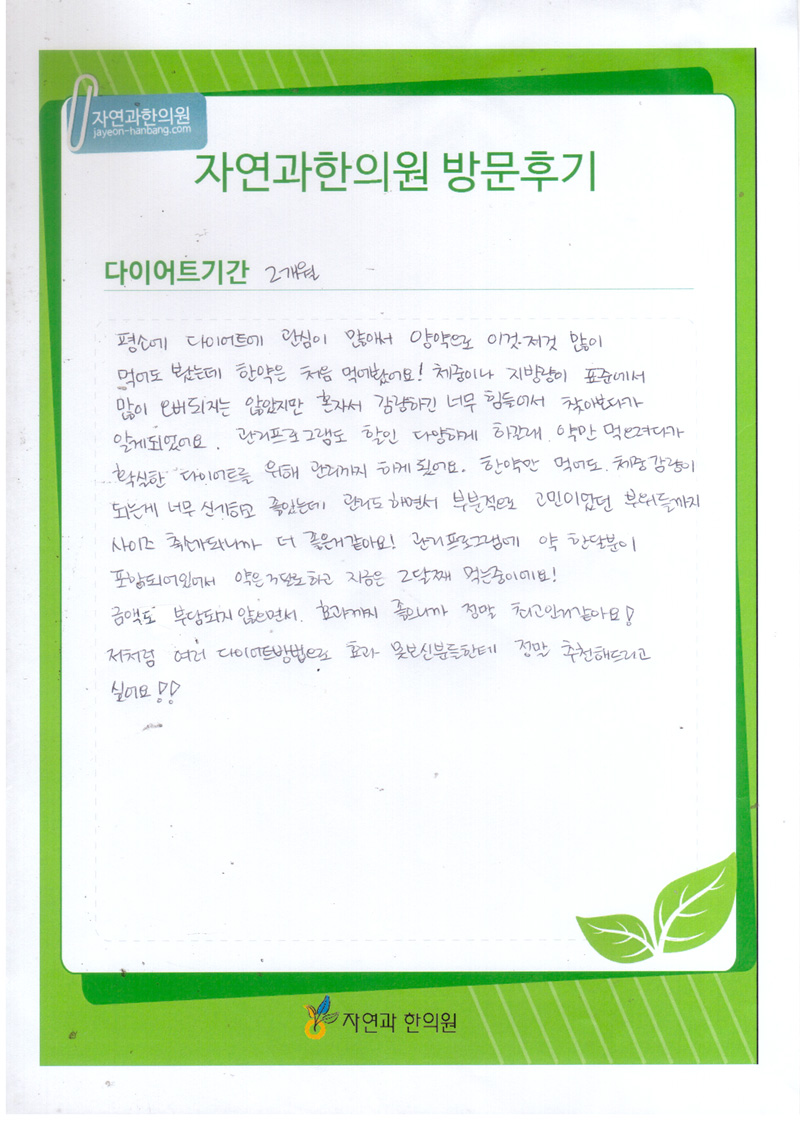 자연과한의원
jayeon-hanbang.com
자연과한의원 방문후기
다이어트기간 2개월
평소에 다이어트에 관심이 많아서 양약으로 이것저것 많이
먹어도 봤는데 한약은 처음 먹어봤어요! 체중이나 지방량이 표준에서
많이 오버되지는 않았지만 혼자서 감량하긴 너무 힘들어서 찾아보다가
알게되었어요. 관리프로그램도 할인 다양하게 하길래 약만 먹으려다가
확실한 다이어트를 위해 관리까지 하게 됐어요. 한약만 먹어도 체중감량이
되는게 너무 신기하고 좋았는데 관리도 하면서 부분적으로 고민이었던 부위들까지
사이즈 축소가되니까 더 좋은거같아요! 관리프로그램에 약 한달분이
포함되어있어서 약은 하고 지금은 2달째 먹는중이에요!
금액도 부담되지 않으면서 효과까지 좋으니까 정말 최고인거같아요!
저처럼 여러 다이어트방법으로 효과 못보신분들한테 정말 추천해드리고
싶어요!!
자연과 한의원